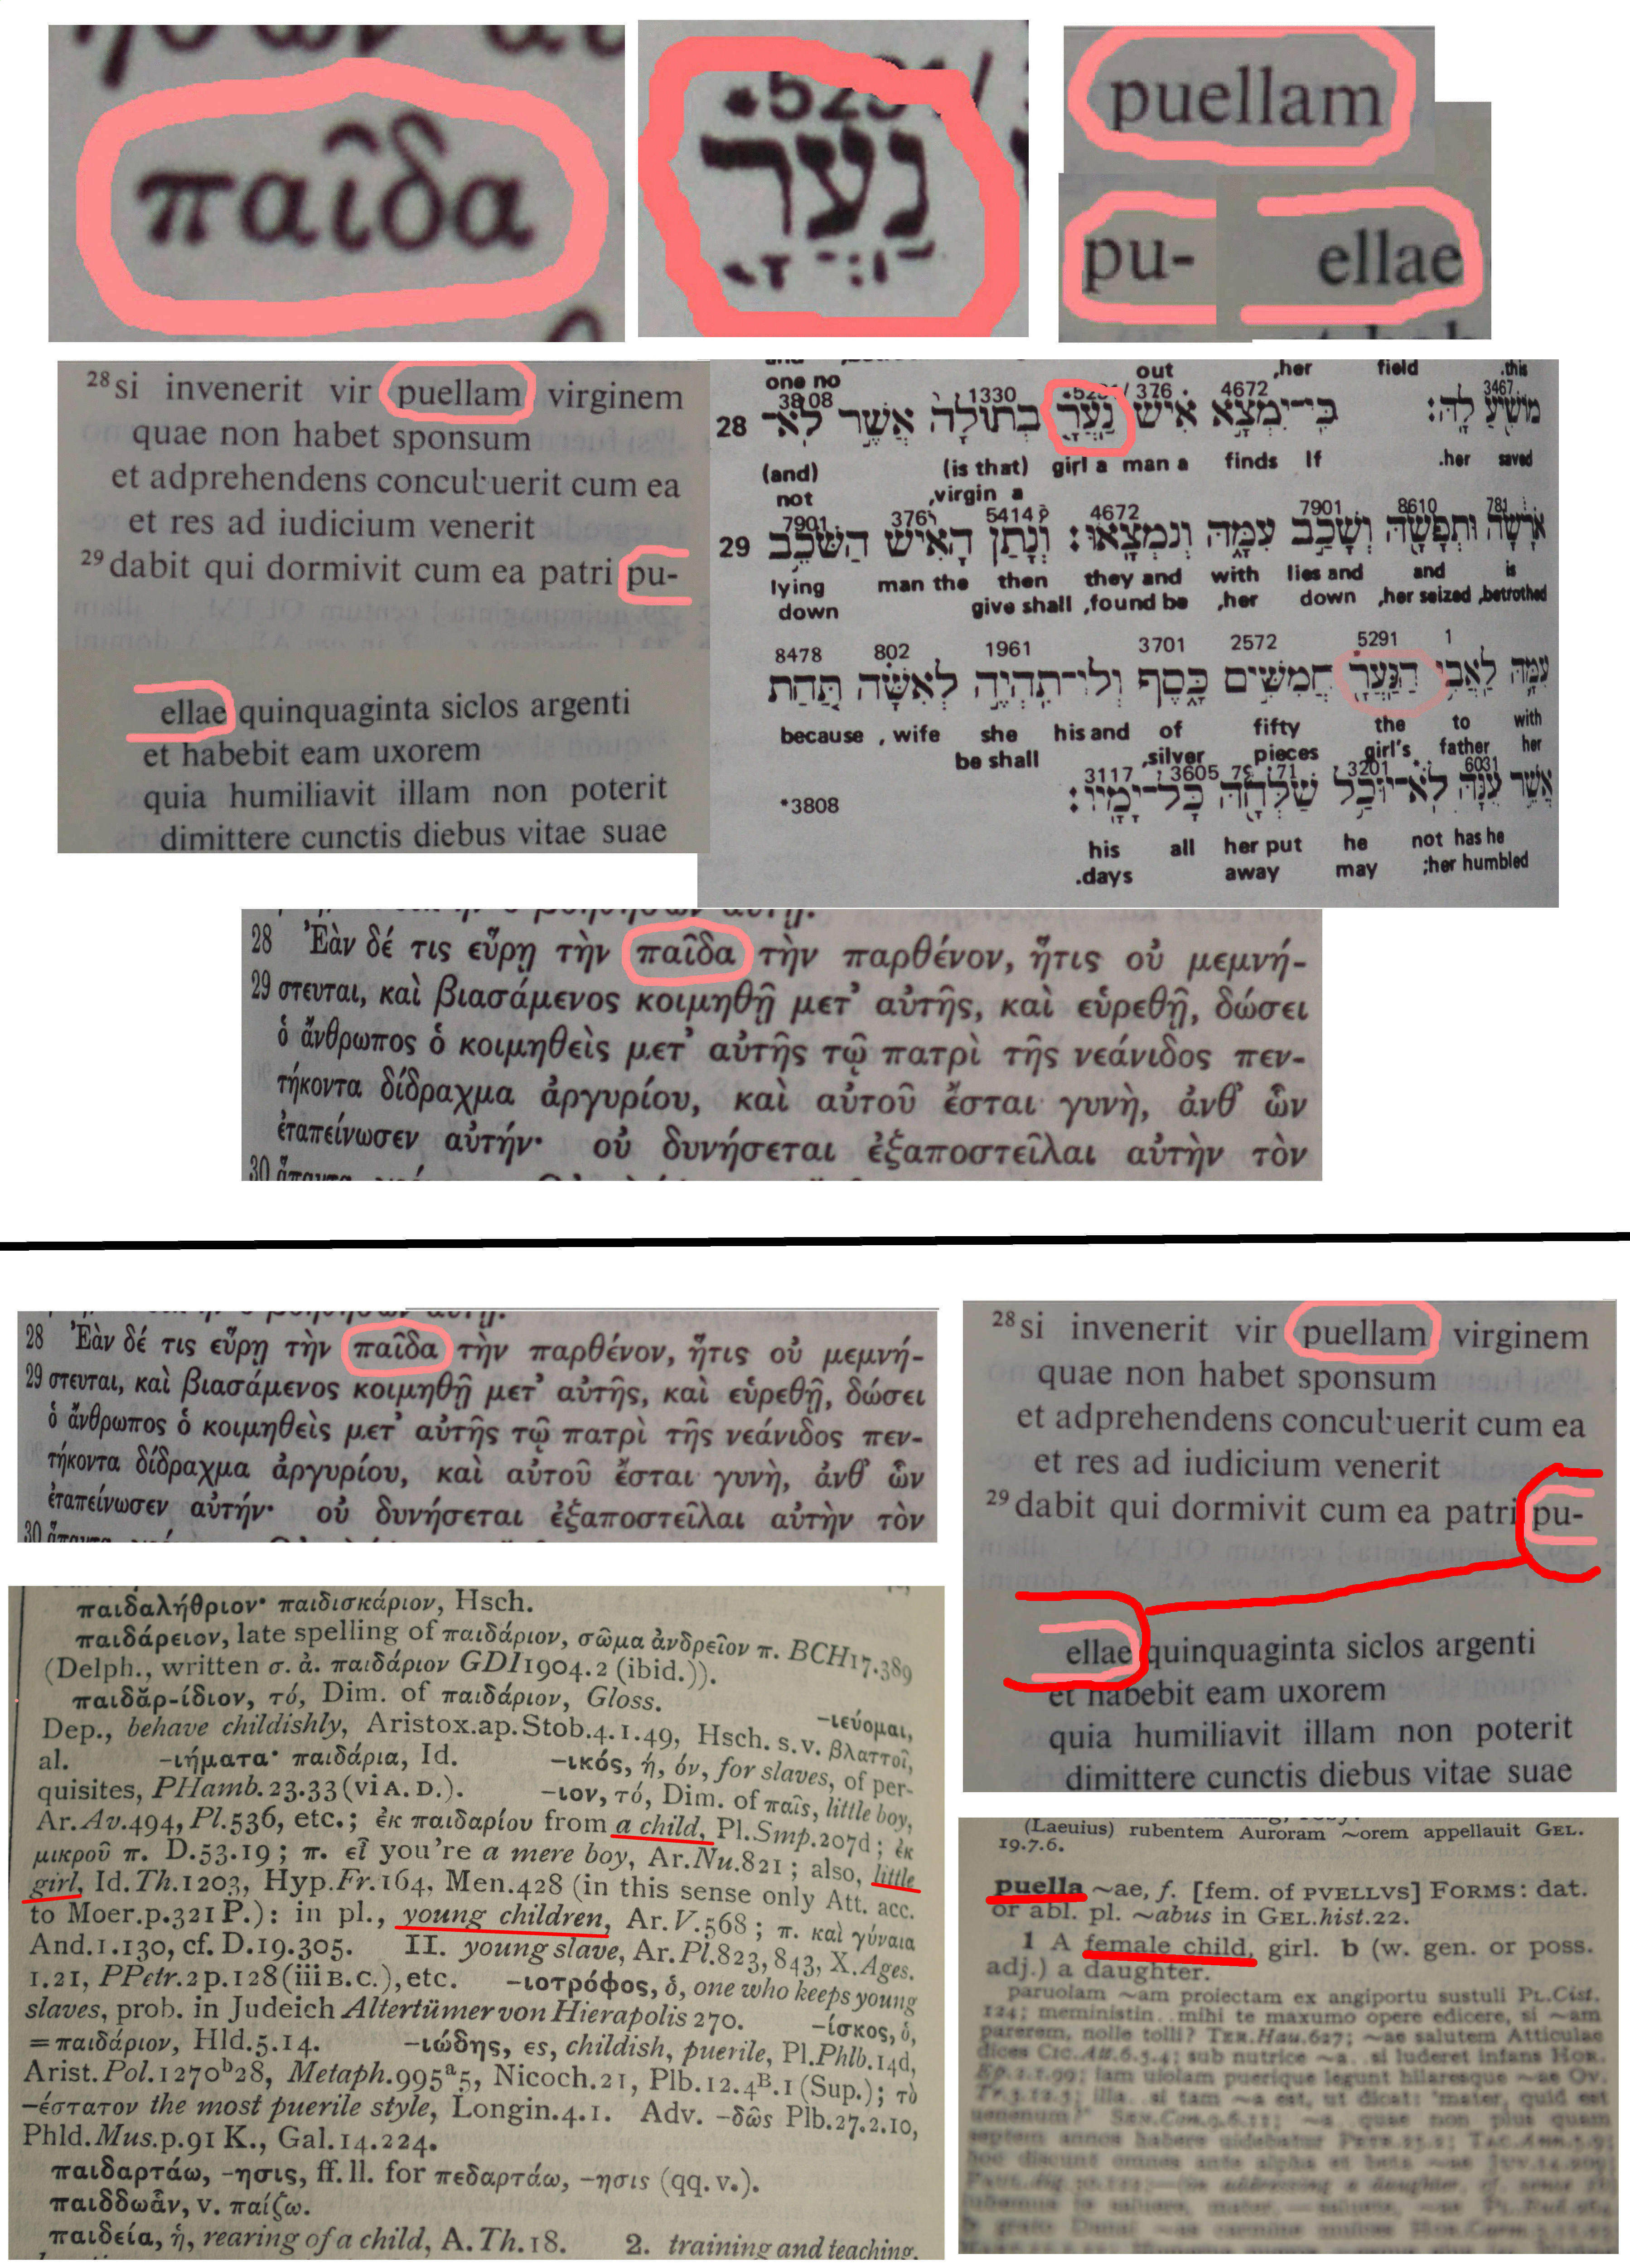 παῖδα
נַעֲרָ
puellam
pu- ellae
28 si invenerit vir puellam virginem
quae non habet sponsum
et adprehendens concubuerit cum ea
et res ad iudicium venerit
29 dabit qui dormivit cum ea patri pu-
ellae quinquaginta siclos argenti
et habebit eam uxorem
quia humiliavit illam non poterit
dimittere cunctis diebus vitae suae
one no out ,her field .this
3808 1330 376 4672 3467
28 מוֹשִׁיעַ לָהּ׃ כִּי־יִמְצָא אִישׁ נַעֲרָ בְתוּלָה אֲשֶׁר לֹא־
(and) (is that) girl a man a finds If .her saved
not ,virgin a
7901 376 5414 4672 7901 8610 781
29 אֹרָשָׂה וּתְפָשָׂהּ וְשָׁכַב עִמָּהּ וְנִמְצָאוּ׃ וְנָתַן הָאִישׁ הַשֹּׁכֵב
lying man the then they and with lies and and is
down give shall ,found be ,her down ,her seized ,betrothed
8478 802 1961 3701 2572 5291 1
עִמָּהּ לַאֲבִי הַנַּעֲרָ חֲמִשִּׁים כָּסֶף וְלוֹ־תִהְיֶה לְאִשָּׁה תַּחַת
because , wife she his and of fifty the to with
be shall ,silver pieces girl's father her
3117 3605 7971 3201 6031
*3808 אֲשֶׁר עִנָּהּ לֹא־יוּכַל שַׁלְּחָהּ כָּל־יָמָיו׃
his all her put he not has he
.days away may ;her humbled
28 Ἐὰν δέ τις εὕρῃ τὴν παῖδα τὴν παρθένον, ἥτις οὐ μεμνή-
29 στευται, καὶ βιασάμενος κοιμηθῇ μετ᾽ αὐτῆς, καὶ εὑρεθῇ, δώσει
ὁ ἄνθρωπος ὁ κοιμηθεὶς μετ᾽ αὐτῆς τῷ πατρὶ τῆς νεάνιδος πεν-
τήκοντα δίδραχμα ἀργυρίου, καὶ αὐτοῦ ἔσται γυνὴ, ἀνθ᾽ ὧν
ἐταπείνωσεν αὐτήν· οὐ δυνήσεται ἐξαποστεῖλαι αὐτὴν τὸν
30
28 Ἐὰν δέ τις εὕρῃ τὴν παῖδα τὴν παρθένον, ἥτις οὐ μεμνή-
29 στευται, καὶ βιασάμενος κοιμηθῇ μετ᾽ αὐτῆς, καὶ εὑρεθῇ, δώσει
ὁ ἄνθρωπος ὁ κοιμηθεὶς μετ᾽ αὐτῆς τῷ πατρὶ τῆς νεάνιδος πεν-
τήκοντα δίδραχμα ἀργυρίου, καὶ αὐτοῦ ἔσται γυνὴ, ἀνθ᾽ ὧν
ἐταπείνωσεν αὐτήν· οὐ δυνήσεται ἐξαποστεῖλαι αὐτὴν τὸν
30
28 si invenerit vir puellam virginem
quae non habet sponsum
et adprehendens concubuerit cum ea
et res ad iudicium venerit
29 dabit qui dormivit cum ea patri pu-
ellae quinquaginta siclos argenti
et habebit eam uxorem
quia humiliavit illam non poterit
dimittere cunctis diebus vitae suae
παιδαλήθριον· παιδισκάριον, Hsch.
παιδάρειον, late spelling of παιδάριον, σῶμα ἀνδρεῖον π. BCH17.389
(Delph., written σ. ἀ. παιδάριον GDI1904.2 (ibid.)).
παιδᾰρ-ίδιον, τό, Dim. of παιδάριον, Gloss. -ιεύομαι,
Dep., behave childishly, Aristox.ap.Stob.4.1.49, Hsch. s.v. βλαττοῖ,
al. -ιήματα· παιδάρια, Id. -ικός, ή, όν, for slaves, of per-
quisites, PHamb.23.33 (vi A.D.). -ιον, τό, Dim. of παῖς, little boy,
Ar.Av.494, Pl.536, etc.; ἐκ παιδαρίου from a child, Pl.Smp.207d; ἐκ
μικροῦ π. D.53.19; π. εἶ you're a mere boy, Ar.Nu.821; also, little
girl, Id.Th.1203, Hyp.Fr.164, Men.428 (in this sense only Att. acc.
to Moer.p.321 P.): in pl., young children, Ar.V.568; π. καὶ γύναια
And.1.130, cf. D.19.305. II. young slave, Ar.Pl.823, 843, X.Ages.
1.21, PPetr.2p.128 (iii B.C.), etc. -ιοτρόφος, ὁ, one who keeps young
slaves, prob. in Judeich Altertümer von Hierapolis 270. -ίσκος, ὁ,
= παιδάριον, Hld.5.14. -ιώδης, ες, childish, puerile, Pl.Phlb.14d,
Arist.Pol.1270ᵇ28, Metaph.995ᵃ5, Nicoch.21, Plb.12.4ᴮ.1 (Sup.); τὸ
-έστατον the most puerile style, Longin.4.1. Adv. -δῶς Plb.27.2.10,
Phld.Mus.p.91 K., Gal.14.224.
παιδαρτάω, -ησις, ff. ll. for πεδαρτάω, -ησις (qq. v.).
παιδδωἇν, v. παίζω.
παιδεία, ἡ, rearing of a child, A.Th.18. 2. training and teaching,
(Laeuius) rubentem Auroram ~orem appellauit GEL.
19.7.6.
puella ~ae, f. [fem. of PVELLVS] FORMS: dat.
or abl. pl. ~abus in GEL.hist.22.
1 A female child, girl. b (w. gen. or poss.
adj.) a daughter.
paruolam ~am proiectam ex angiportu sustuli PL.Cist.
124; meministin.. mihi te maxumo opere edicere, si ~am
parerem, nolle tolli? TER.Hau.627; ~ae salutem Atticulae
dices CIC.Att.6.5.4; sub nutrice ~a. si luderet infans HOR.